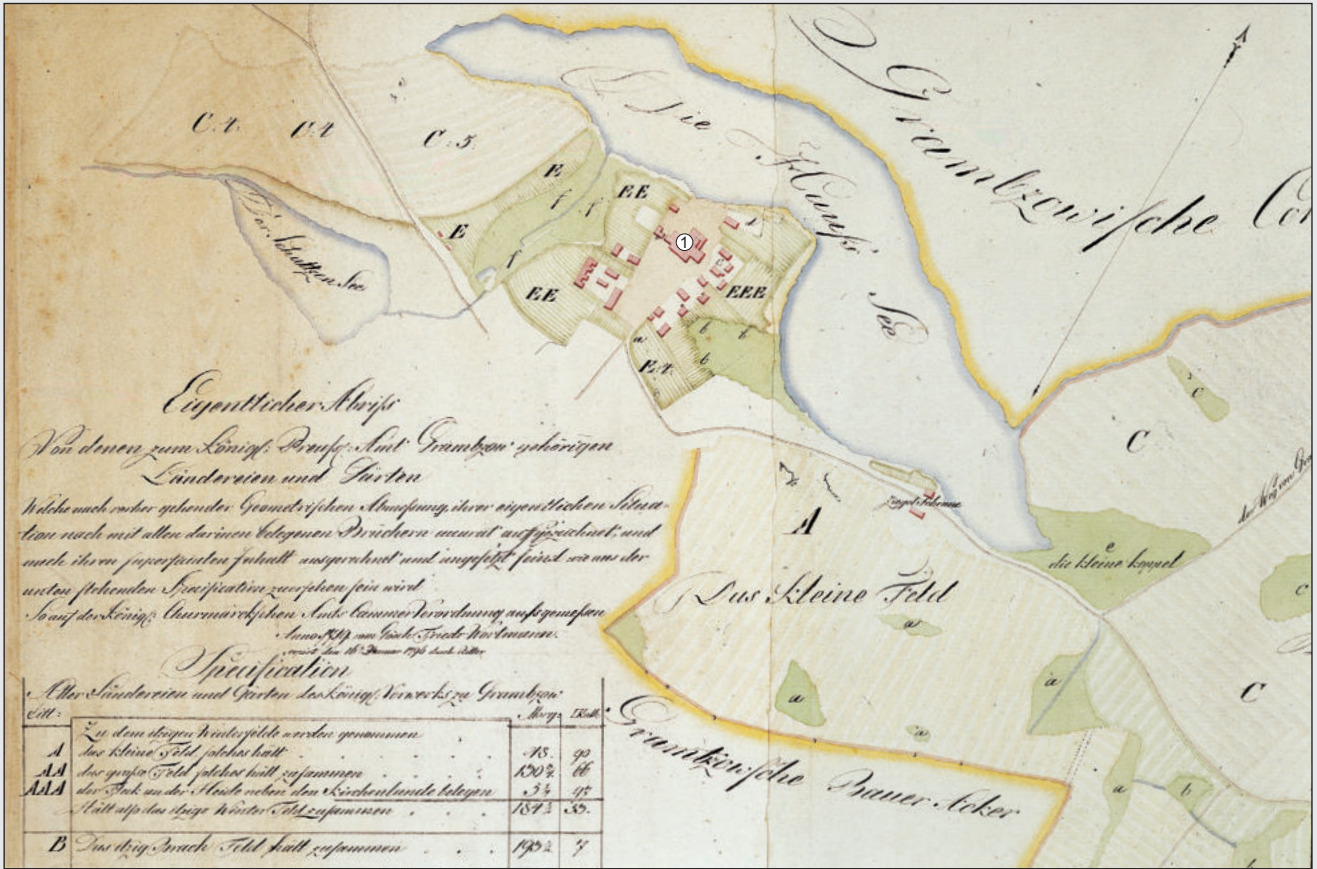 C.4. C.4 C.5.
Die Hauss See
Grambzowische
Der Schatzen See
E
f
E
f
f
EE
①
EE
EEE
a
b
b
b
E.4.
Eigentlicher Abriss
Von denen zum Königl: Preuss: Amt Grambzow gehörigen
Ländereien und Gärten
Welche nach vorher gehender Geometrischen Abmessung ihrer eigentlichen Situa-
tion nach mit allen darinen belegenen Brüchern accurat auffgezeichnet, und
nach ihren superficialen Inhalt ausgerechnet und angesetzt seind wie aus der
unten stehenden Specification zu ersehen sein wird
So auf der Königl: Churmärckschen Ambts Cammer Verordnung aufgemessen
Anno
Specification
Aller Ländereien und Gärten des Königl: Vorwerks zu Grambzow
Litt: Morg:
Zu dem itzigen Winterfelde werden genommen
A das kleine Feld solches hält
AA das grosse Feld solches hält zusammen
AAA neben dem Kirchenlande belegen
Hält also das itzige Winter Feld zusammen
B Das itzig Brach Feld hält zusammen
A
Das kleine Feld
a
a
a
a
Ziegel Scheune
e
die kleine koppel
C
c
der Weg von
c
C
Gramtzowsche Bauer Acker
a
b